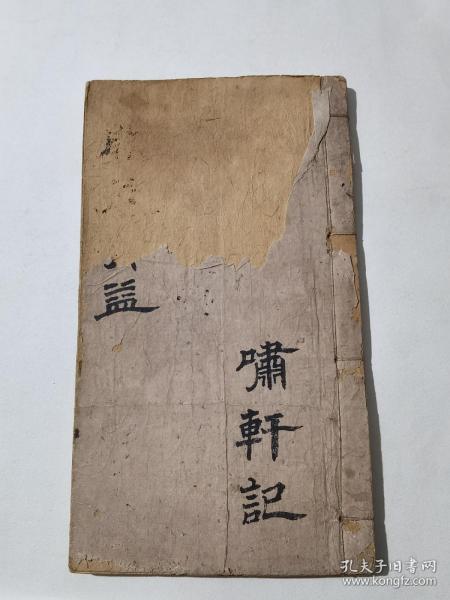 益
嘯軒記
孔夫子旧书网
www.kongfz.com